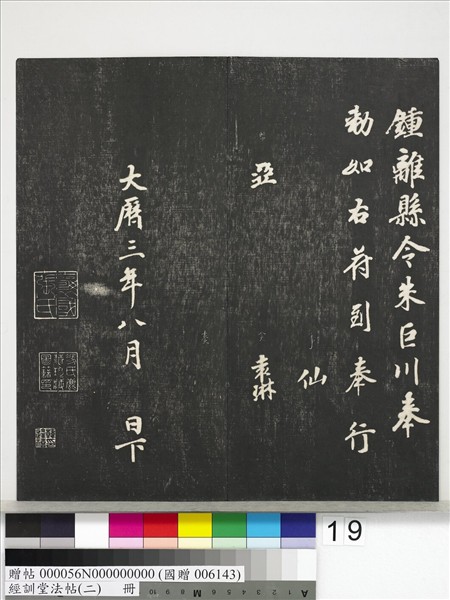 鍾離縣令朱巨川奉
勑如右符到奉行
仙
亞
袁琳
大曆三年八月 日下
19
贈帖 000056N000000000 (國贈 006143)
經訓堂法帖(二) 冊